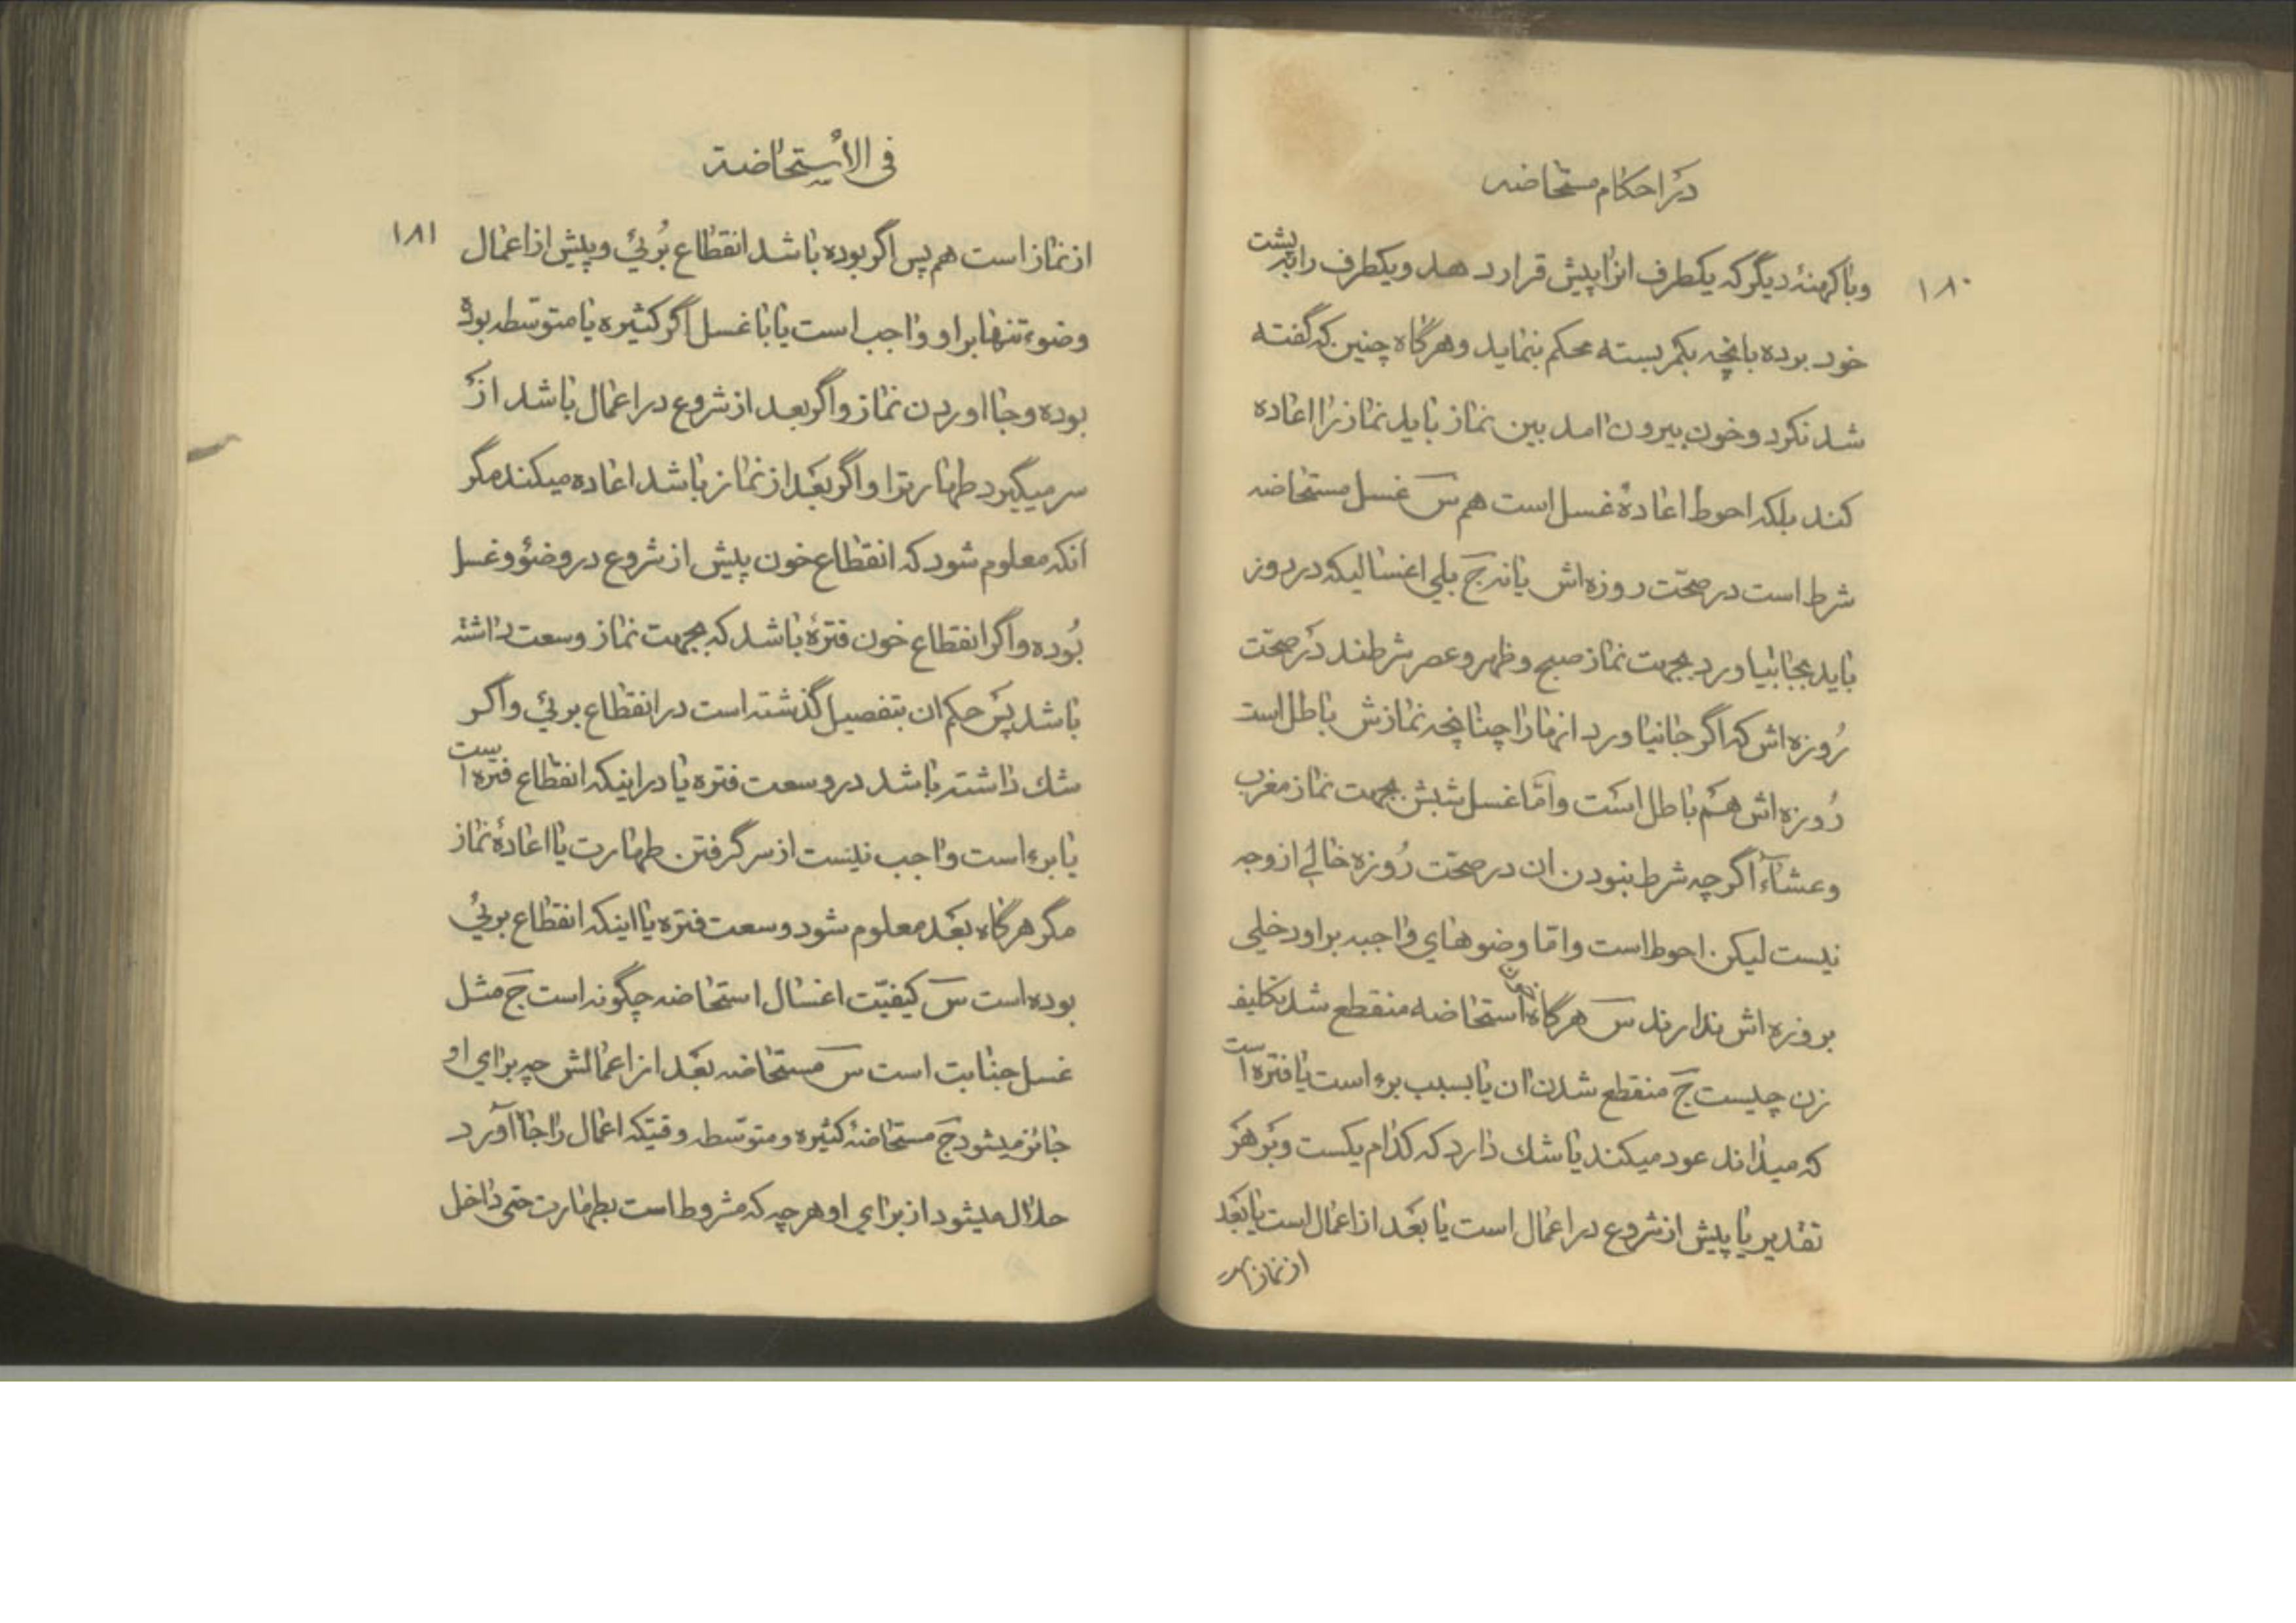 در احکام مستحاضه
۱۸۰
وبا کهنهٔ دیگر که یکطرف انرا پیش قرار دهد ویکطرف را به پشت
خود برده بانچه بکمر بسته محکم بنماید وهرگاه چنین که گفته
شد نکرد وخون بیرون امد بین نماز باید نماز را اعاده
کند بلکه احوط اعادهٔ غسل است هم س غسل مستحاضه
شرط است در صحّت روزه‌اش یا نه ج بلی اغسالیکه در روز
باید بجا بیاورد بجهت نماز صبح و ظهر و عصر شرطند در صحّت
روزه‌اش که اگر جا نیاورد انها را چنانچه نمازش باطل است
روزه‌اش هم باطل است وامّا غسل شبش بجهت نماز مغرب
وعشآء اگرچه شرط نبودن ان در صحّت روزه خالی از وجه
نیست لیکن احوط است وامّا وضوهای واجبه بر او دخلی
بروزه‌اش ندارند س هرگاه خون استحاضه منقطع شد تکلیف
زن چیست ج منقطع شدن ان یا بسبب برء است یا فتره است
که میداند عود میکند یا شك دارد که کدام یکست وبر هر
تقدیر یا پیش از شروع در اعمال است یا بعد از اعمال است یا بعد
از نماز
فی الأستحاضة
۱۸۱
از نماز است هم پس اگر بوده باشد انقطاع بُرئی و پیش از اعمال
وضوء تنها بر او واجب است یا با غسل اگر کثیره یا متوسطه بوده
بوده وجا اوردن نماز واگر بعد از شروع در اعمال باشد از
سر میگیرد طهارت را واگر بعد از نماز باشد اعاده میکند مگر
انکه معلوم شود که انقطاع خون پیش از شروع در وضوٴ وغسل
بُوده واگر انقطاع خون فترهٔ باشد که بجهت نماز وسعت داشته
باشد پس حکم ان بتفصیل گذشته است در انقطاع برئی واگر
شك داشته باشد در وسعت فتره یا در اینکه انقطاع فتره است
یا برء است واجب نیست از سر گرفتن طهارت یا اعادهٔ نماز
مگر هرگاه بعد معلوم شود وسعت فتره یا اینکه انقطاع برئی
بوده است س کیفیّت اغسال استحاضه چگونه است ج مثل
غسل جنابت است س مستحاضه بعد از اعمالش چه برای او
جائز میشود ج مستحاضهٔ کثیره و متوسّطه وقتیکه اعمال را جا آورد
حلال میشود از برای او هرچه که مشروط است بطهارت حتی داخل